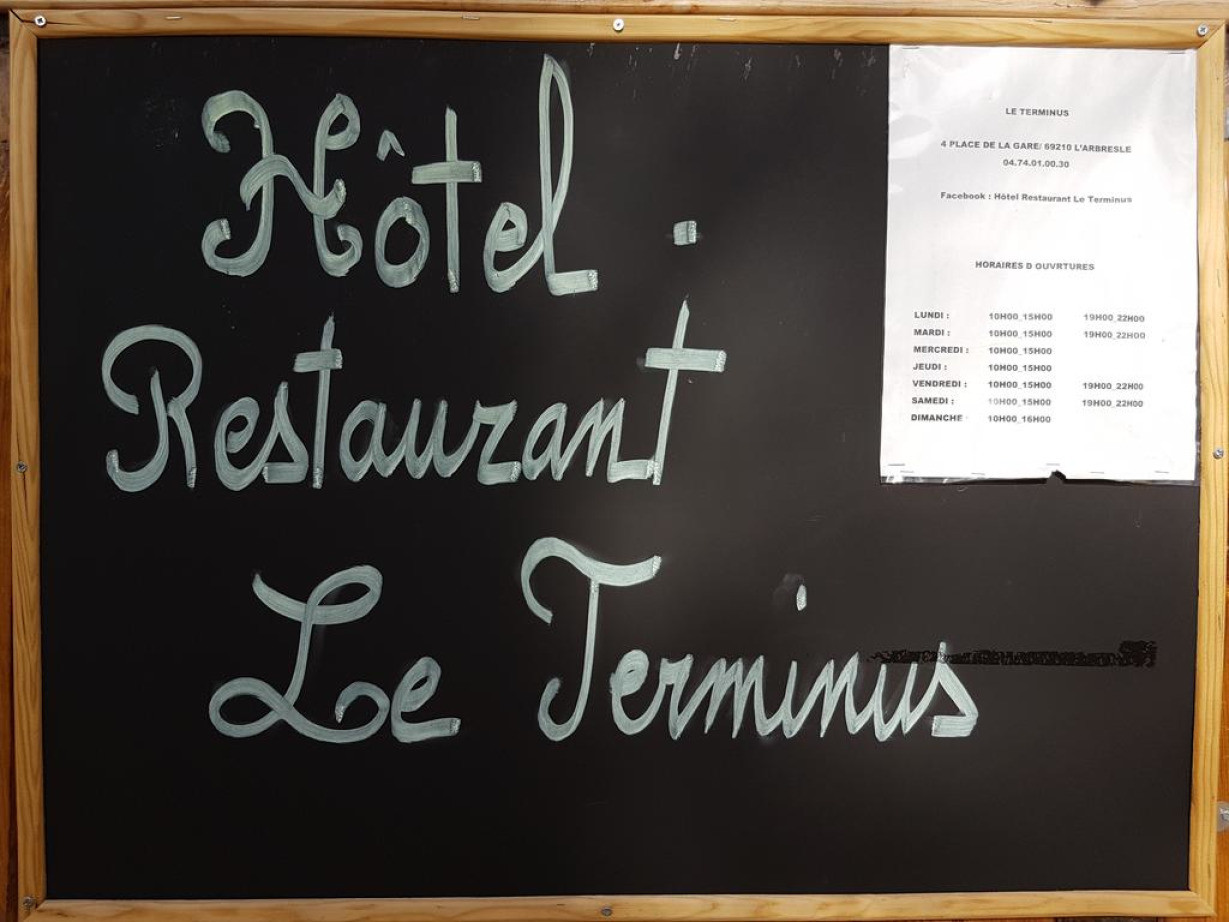 Hôtel .
Restaurant
Le Terminus
LE TERMINUS
4 PLACE DE LA GARE/ 69210 L'ARBRESLE
04.74.01.00.30
Facebook : Hôtel Restaurant Le Terminus
HORAIRES D OUVRTURES
LUNDI : 10H00_15H00 19H00_22H00
MARDI : 10H00_15H00 19H00_22H00
MERCREDI : 10H00_15H00
JEUDI : 10H00_15H00
VENDREDI : 10H00_15H00 19H00_22H00
SAMEDI : 10H00_15H00 19H00_22H00
DIMANCHE 10H00_16H00